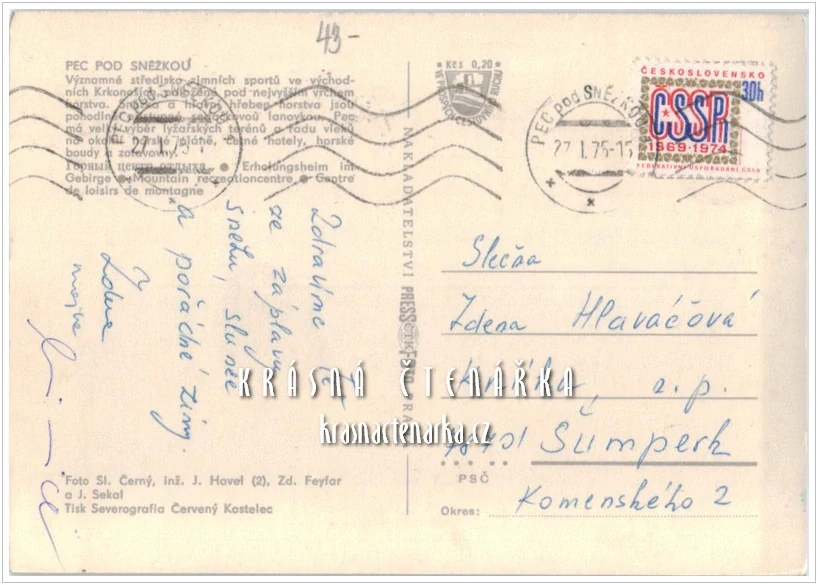 43-
PEC POD SNĚŽKOU
Významné středisko zimních sportů ve východ-
ních Krkonoších, položené pod nejvyšším vrchem
horstva. a hlavní hřeben horstva jsou
pohodlně sedačkovou lanovkou. Pec
má velký výběr lyžařských terénů a řadu vleků
na četné hotely, horské
boudy a zotavovny.
Горный центр отдыха ● Erholungsheim im
Gebirge ● Mountain recreationcentre ● Centre
de loisirs de montagne
PEC POD SNĚŽKOU
27.I.75-
Kčs 0,20
VE PROSPĚCH CESTOVNÍHO RUCHU
PEC POD SNĚŽKOU
27.I.75-15
ČESKOSLOVENSKO
30h
ČSSR
1969·1974
FEDERATIVNÍ USPOŘÁDÁNÍ ČSSR
Zdravíme Tě
ze záplavy
sněhu, slunce
a pořádné zimy.
Zdena
NAKLADATELSTVÍ PRESSFOTO PRAHA
ČTK
Slečna
Zdena Hlaváčová
n.p.
78701 Šumperk
PSČ
Okres: Komenského 2
KRÁSNÁ ČTENÁŘKA
krasnactenarka.cz
Foto Sl. Černý, inž. J. Havel (2), Zd. Feyfar
a J. Sekal
Tisk Severografia Červený Kostelec